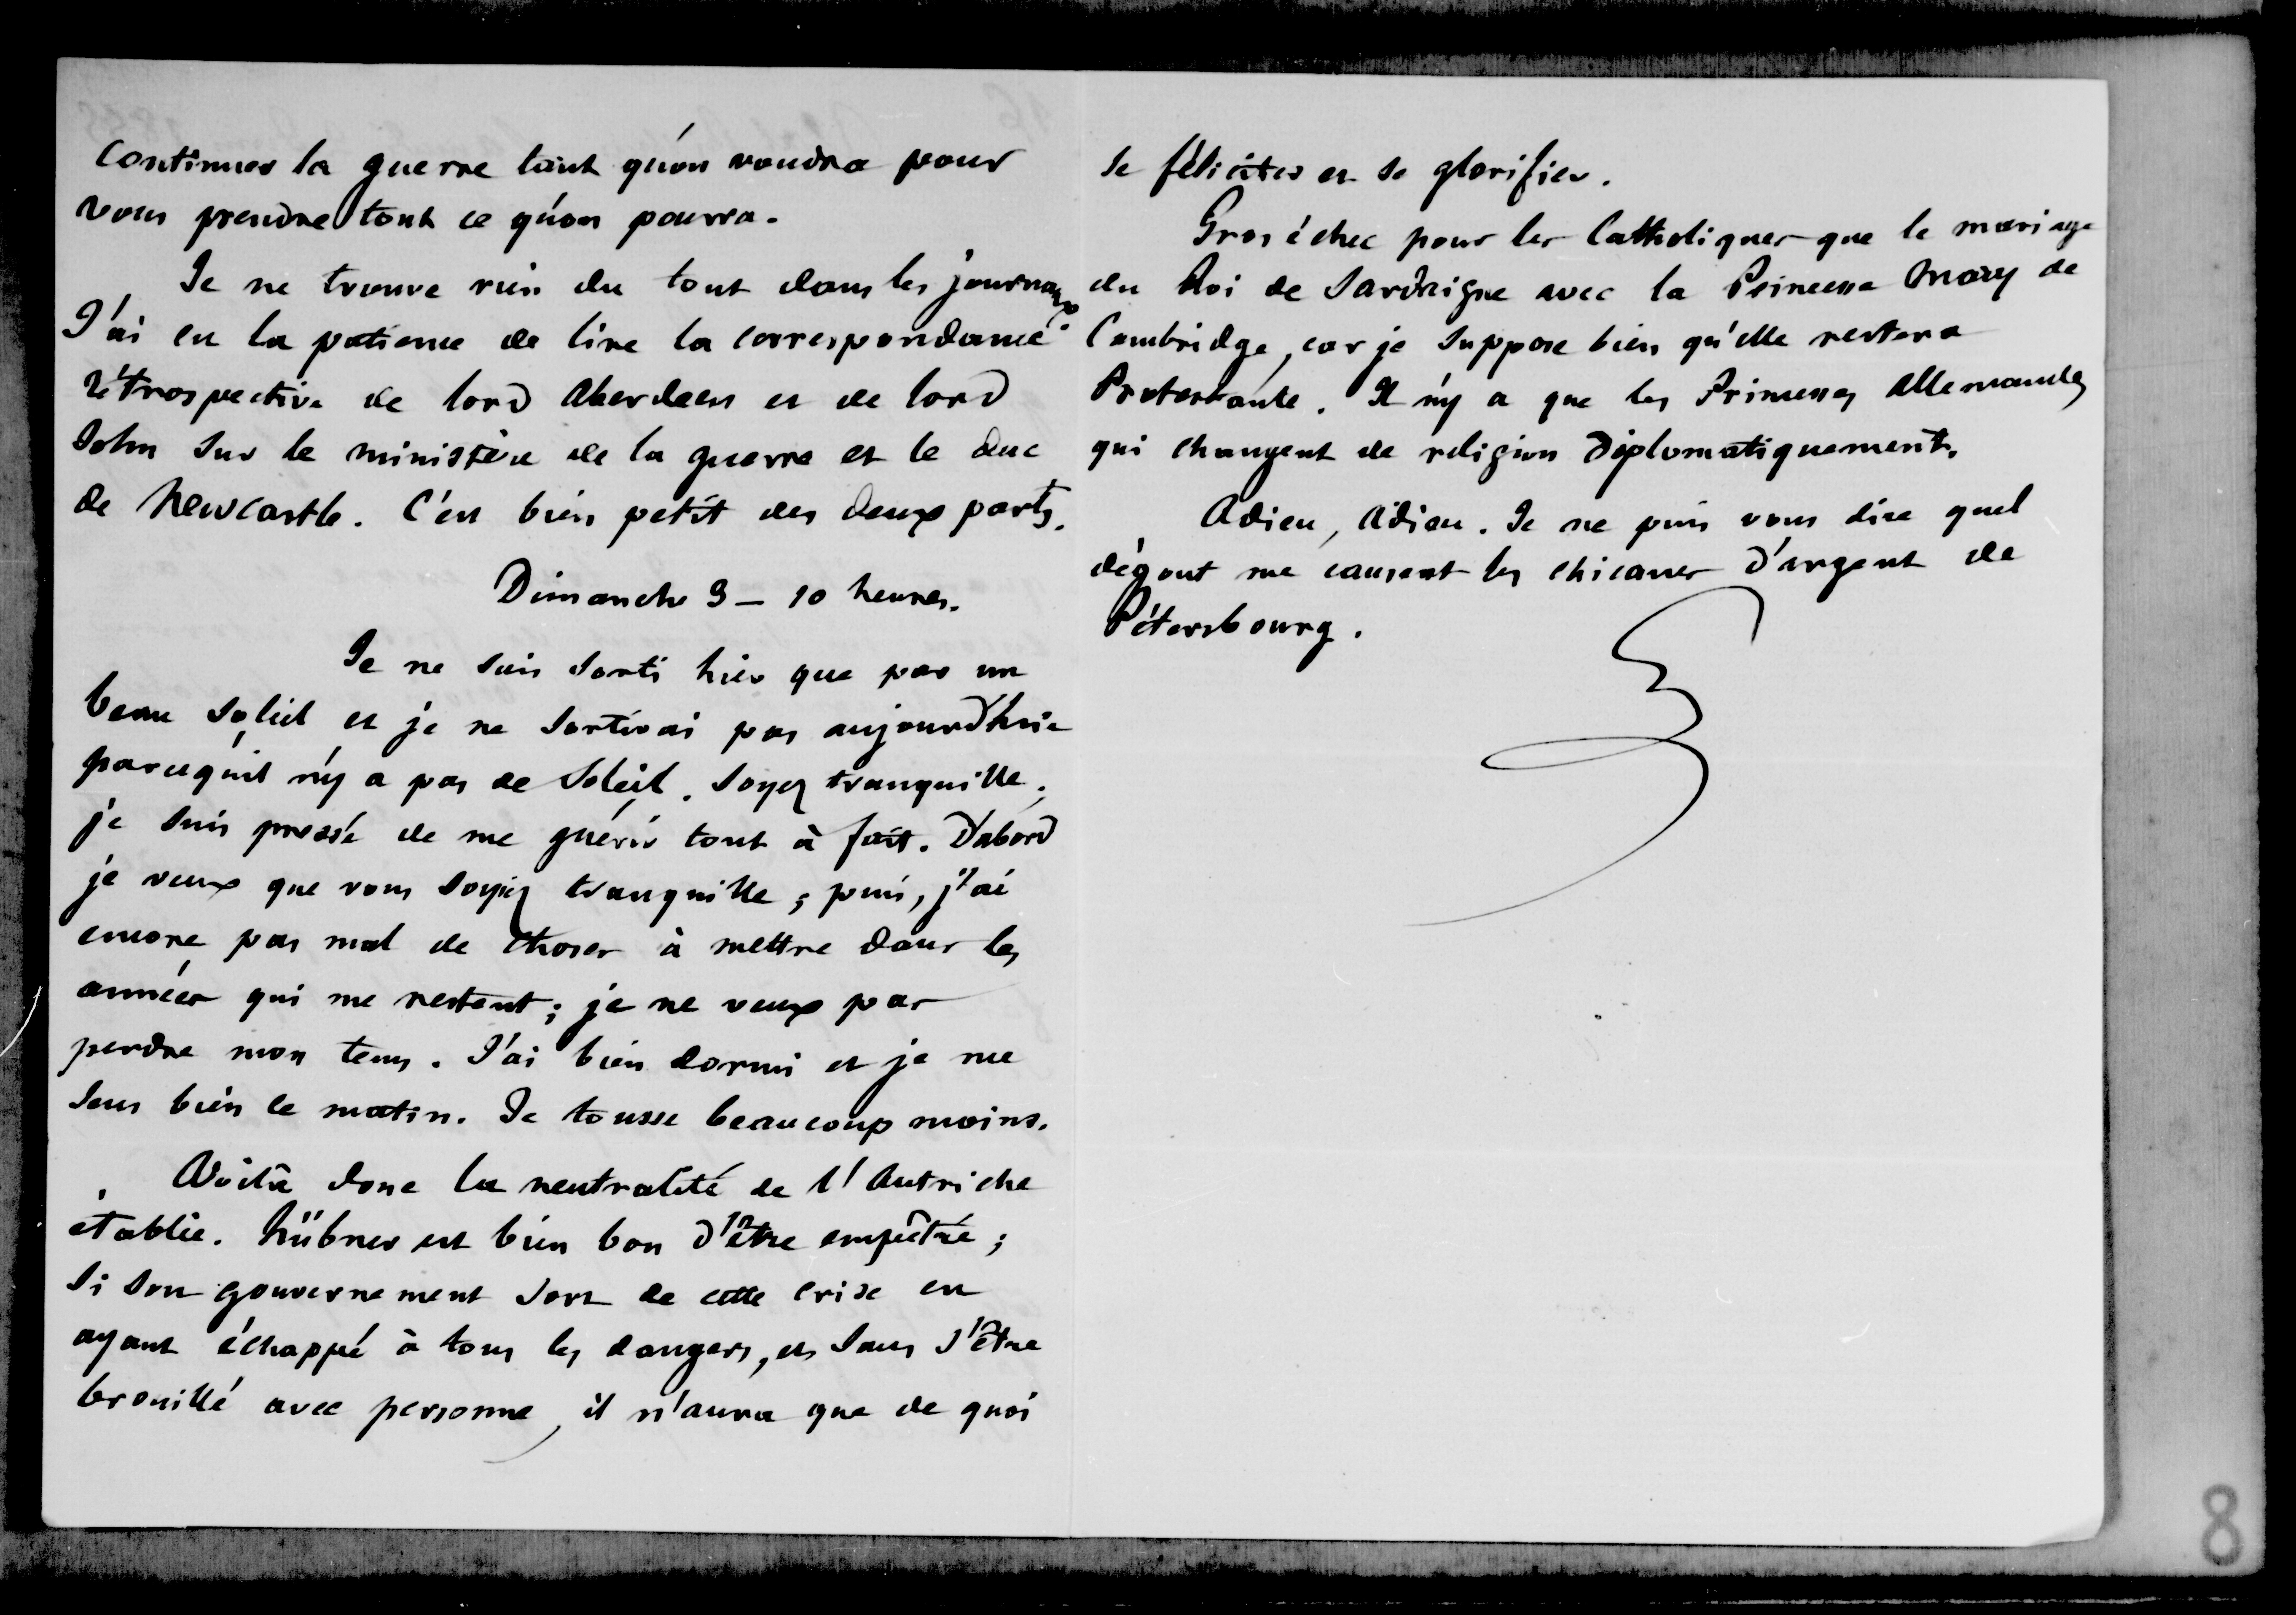 continuer la guerre tant qu'on voudra pour
vous prendre tout ce qu'on pourra.
Je ne trouve rien du tout dans les journaux.
J'ai eu la patience de lire la correspondance
rétrospective de lord Aberdeen et de lord
John sur le ministère de la guerre et le duc
de Newcastle. C'est bien petit des deux parts.
Dimanche 9 - 10 heures.
Je ne suis sorti hier que par un
beau soleil et je ne sortirai pas aujourd'hui
parcequ'il n'y a pas de soleil. Soyez tranquille ;
je suis pressé de me guérir tout à fait. D'abord
je veux que vous soyiez tranquille ; puis, j'ai
encore pas mal de choses à mettre dans les
années qui me restent ; je ne veux pas
perdre mon tems. J'ai bien dormi et je me
sens bien ce matin. Je tousse beaucoup moins.
Voilà donc la neutralité de l'Autriche
établie. Hübner est bien bon d'être empêtré ;
si son gouvernement sort de cette crise en
ayant échappé à tous les dangers, et sans s'être
brouillé avec personne, il n'aura que de quoi
se féliciter et se glorifier.
Gros échec pour les Catholiques que le mariage
du Roi de Sardaigne avec la Princesse Mary de
Cambridge, car je suppose bien qu'elle restera
Protestante. Il n'y a que les Princesses allemandes
qui changent de religion diplomatiquement.
Adieu, Adieu. Je ne puis vous dire quel
dégout me causent les chicanes d'argent de
Pétersbourg.
8